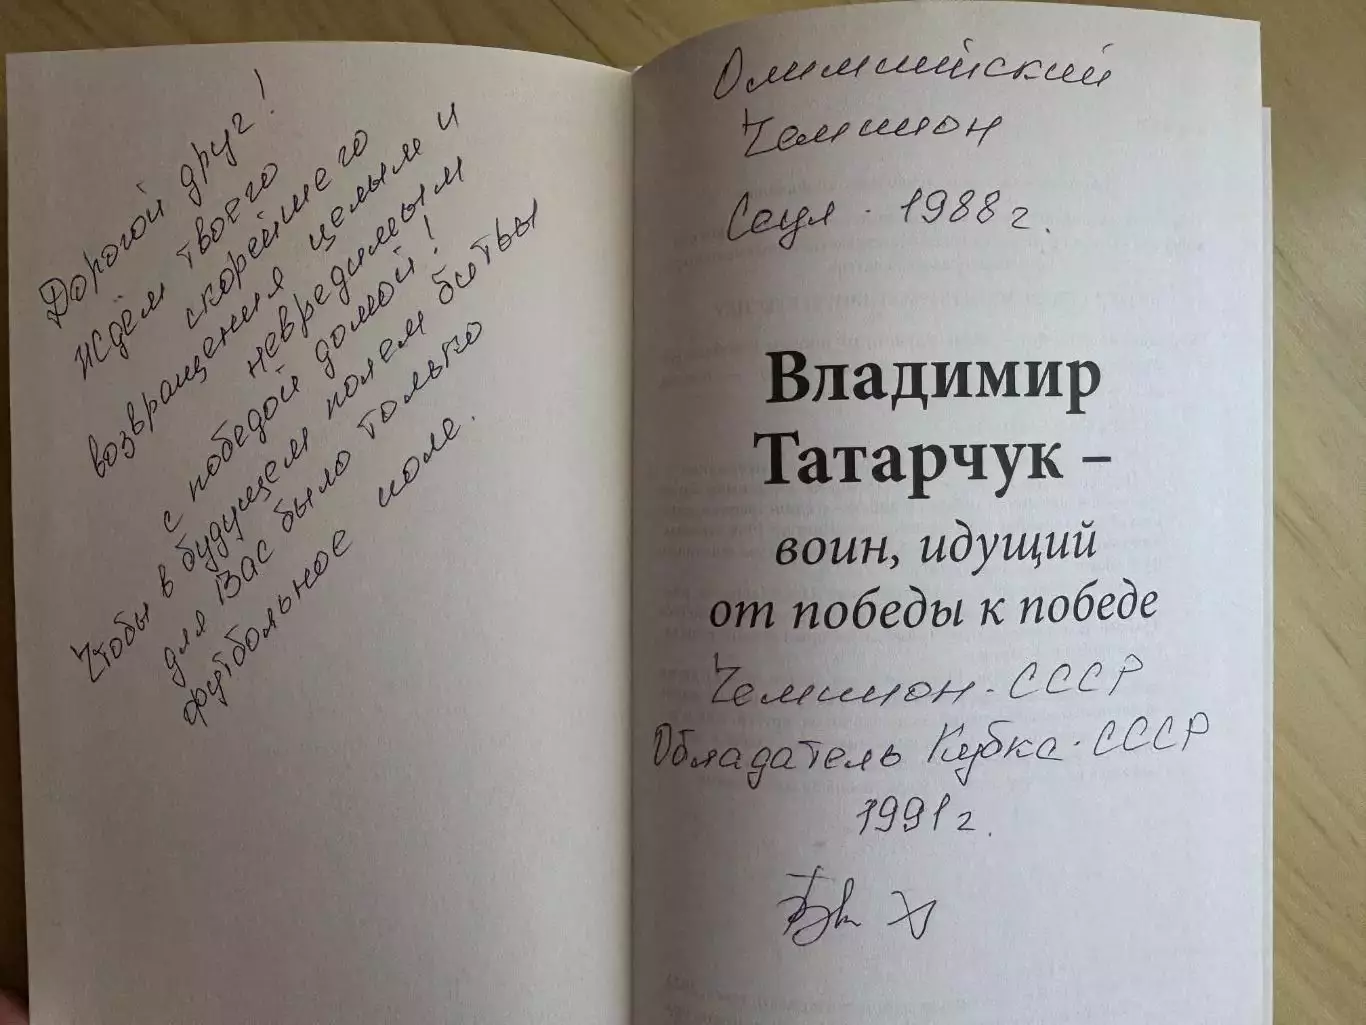 Дорогой друг!
Ждём твоего
скорейшего
возвращения целым и
невредимым
с победой домой!
Чтобы в будущем полем битвы
для Вас было только
футбольное поле.
Олимпийский
Чемпион
Сеул. 1988 г.
Владимир
Татарчук –
воин, идущий
от победы к победе
Чемпион. СССР
Обладатель Кубка. СССР
1991 г.